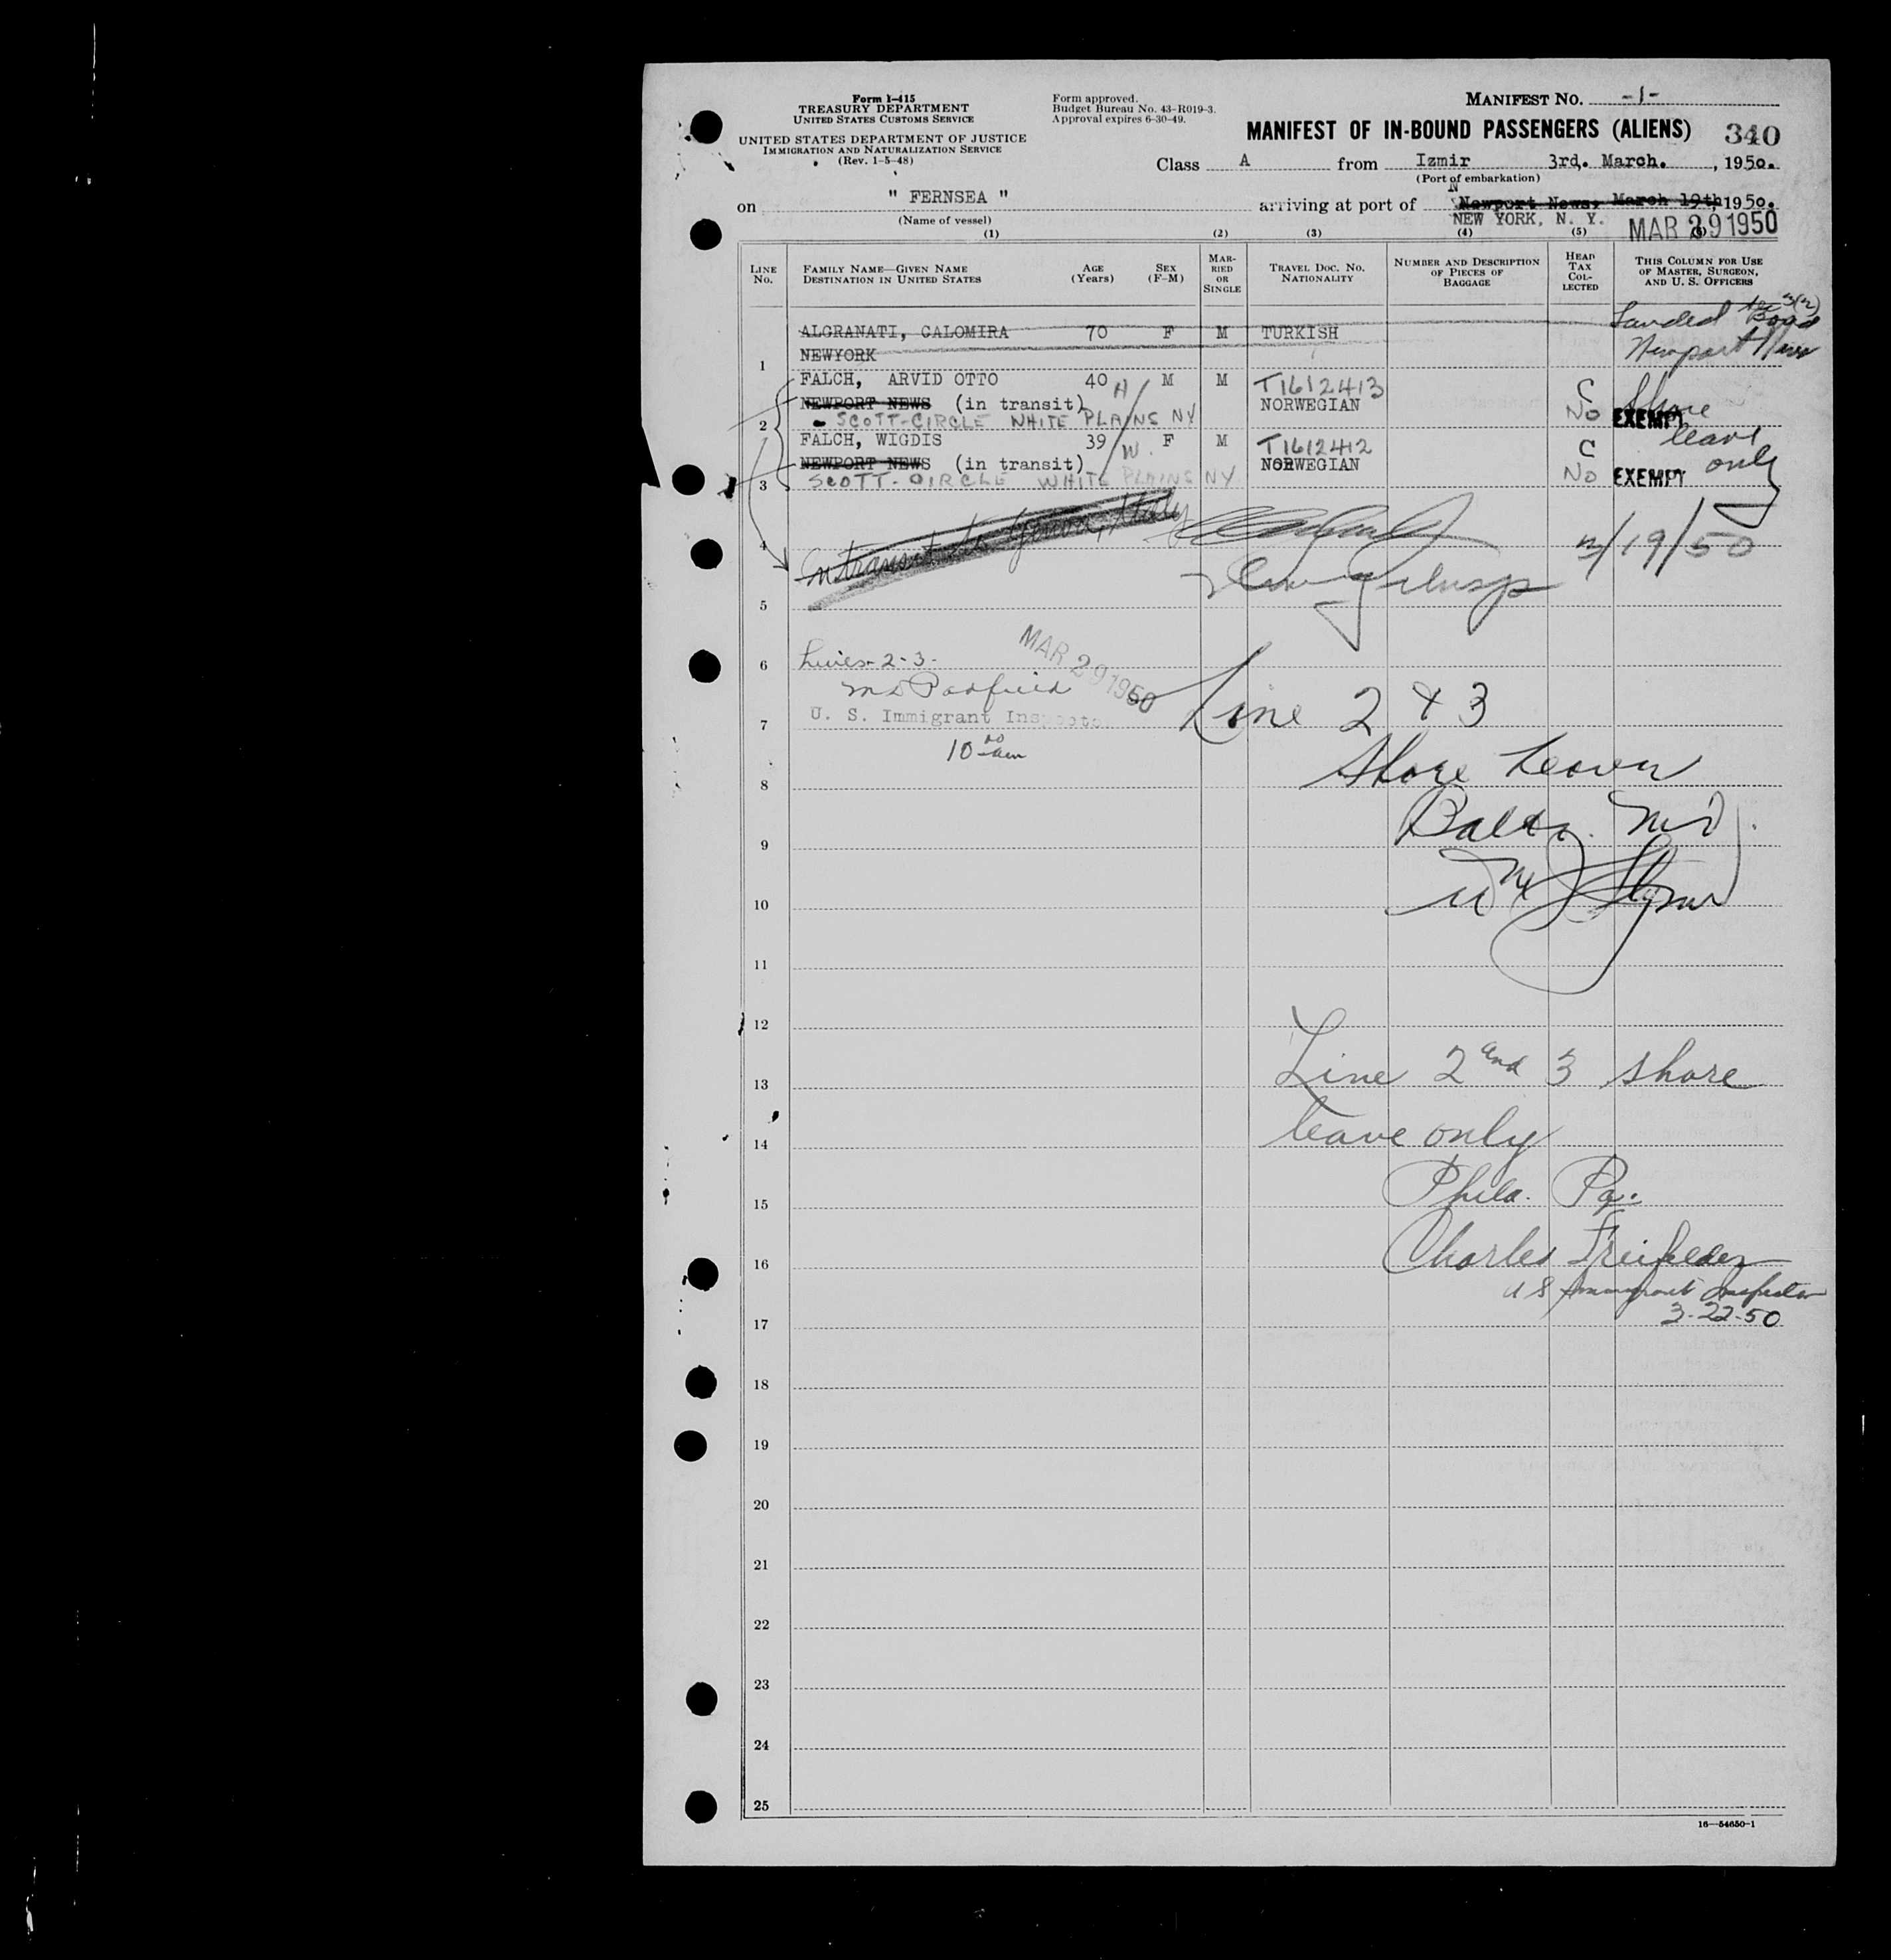 Form I-415
TREASURY DEPARTMENT
UNITED STATES CUSTOMS SERVICE
UNITED STATES DEPARTMENT OF JUSTICE
IMMIGRATION AND NATURALIZATION SERVICE
(Rev. 1-5-48)
Form approved.
Budget Bureau No. 43-R019-3.
Approval expires 6-30-49.
MANIFEST NO. -1-
MANIFEST OF IN-BOUND PASSENGERS (ALIENS) 340
Class A from Izmir 3rd. March. , 1950.
(Port of embarkation)
on " FERNSEA " arriving at port of Newport News, March 19th 1950.
(Name of vessel)
NEW YORK, N. Y. MAR 29 1950
(1) (2) (3) (4) (5)
LINE NO.
FAMILY NAME—GIVEN NAME
DESTINATION IN UNITED STATES
AGE (Years)
SEX (F-M)
MARRIED OR SINGLE
TRAVEL DOC. NO. NATIONALITY
NUMBER AND DESCRIPTION OF PIECES OF BAGGAGE
HEAD TAX COLLECTED
THIS COLUMN FOR USE OF MASTER, SURGEON, AND U. S. OFFICERS
ALGRANATI, CALOMIRA 70 F M TURKISH Landed
NEWYORK Newport News
1
FALCH, ARVID OTTO 40 H M M T1612413 C
NEWPORT NEWS (in transit) NORWEGIAN No EXEMPT Shore
2 SCOTT-CIRCLE WHITE PLAINS NY leave
FALCH, WIGDIS 39 W. F M T1612412 C only
NEWPORT NEWS (in transit) NORWEGIAN No EXEMPT
3 SCOTT-CIRCLE WHITE PLAINS NY
In transit to Genoa, Italy
4 3/19/50
5
MAR 29 1950
6 Lines-2-3-
Line 2 & 3
7 U. S. Immigrant Inspector
10 00 am
Shore Leave
8
Balto. Md.
9
10
11
12
13 Line 2 and 3 shore
14 leave only
15 Phila. Pa.
16 Charles Freifelder
U S Immigrant Inspector
17 3-22-50
18
19
20
21
22
23
24
25
16—54650-1